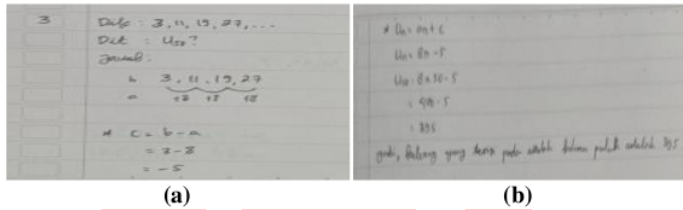 3
Dik : 3, 11, 19, 27, ...
Dit : U50 ?
Jawab :
b 3, 11, 19, 27
a +8 +8 +8
* c = b - a
= 3 - 8
= -5
(a)
* Un = an + c
Un = 8n - 5
U50 = 8 x 50 - 5
= 400 - 5
= 395
Jadi, bilangan yang pada adalah lima puluh adalah 395
(b)